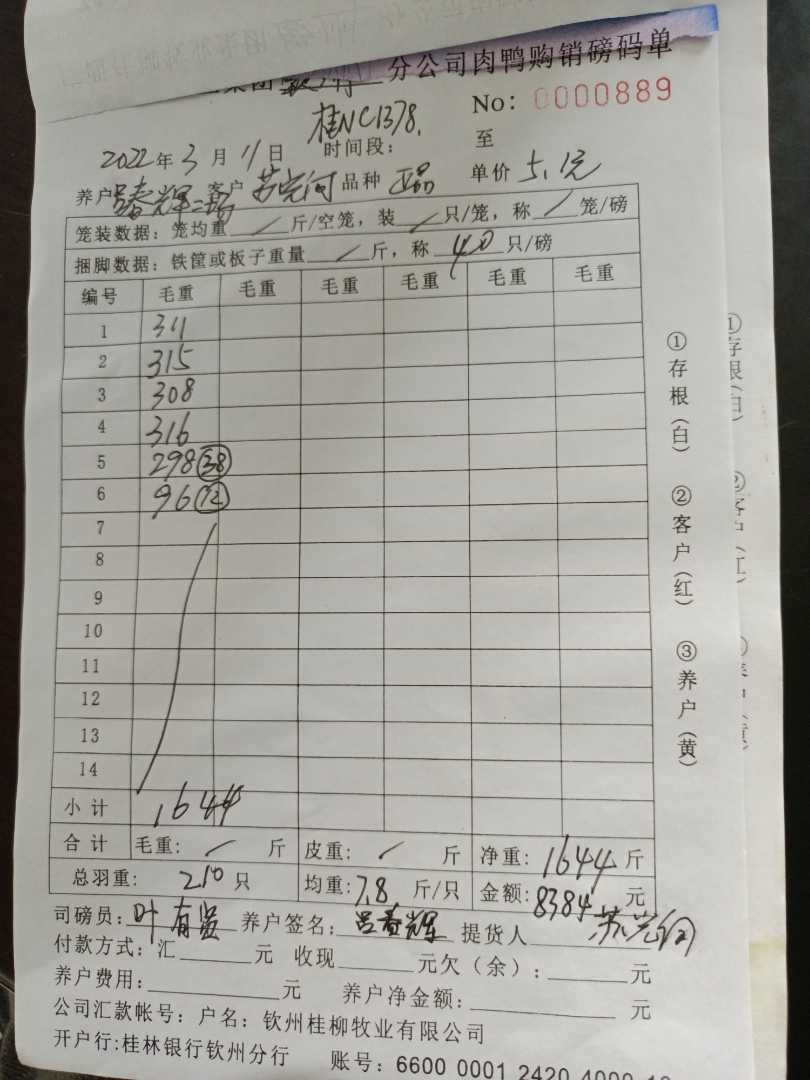 分公司肉鸭购销磅码单
No: 0000889
桂NC1378.
2022年3月11日 时间段: 至
养户 吕春辉二场 客户 品种 正品 单价 5.1元
笼装数据: 笼均重 / 斤/空笼, 装 / 只/笼, 称 / 笼/磅
捆脚数据: 铁筐或板子重量 / 斤, 称 40 只/磅
编号 毛重 毛重 毛重 毛重 毛重 毛重
1 311
2 315
3 308
4 316
5 298 (38)
6 96 (12)
7
8
9
10
11
12
13
14
小计 1644
合计 毛重: / 斤 皮重: / 斤 净重: 1644 斤
总羽重: 210 只 均重: 7.8 斤/只 金额: 8384 元
司磅员: 叶有贤 养户签名: 吕春辉 提货人
付款方式: 汇 元 收现 元欠(余): 元
养户费用: 元 养户净金额: 元
公司汇款帐号: 户名: 钦州桂柳牧业有限公司
开户行:桂林银行钦州分行 账号: 6600 0001 2420 4000
①存根(白) ②客户(红) ③养户(黄)